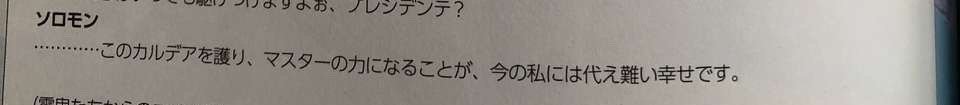 でも駆けつけますよお、プレジデンテ？
ソロモン
…………このカルデアを護り、マスターの力になることが、今の私には代え難い幸せです。